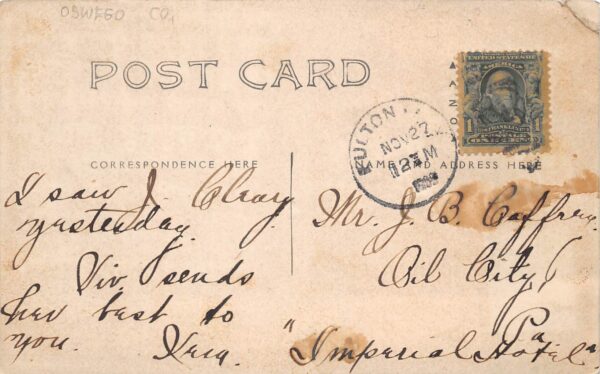 OSWEGO CO,
POST CARD
UNITED STATES OF
AMERICA
1 FRANKLIN 1
FULTON
NOV 27
12 M
CORRESPONDENCE HERE
NAME AND ADDRESS HERE
I saw J. Cleary
yesterday.
Viv sends
her best to
you.
Mr. J. B. Caffrey
Oil City
Pa
"Imperial Hotel"